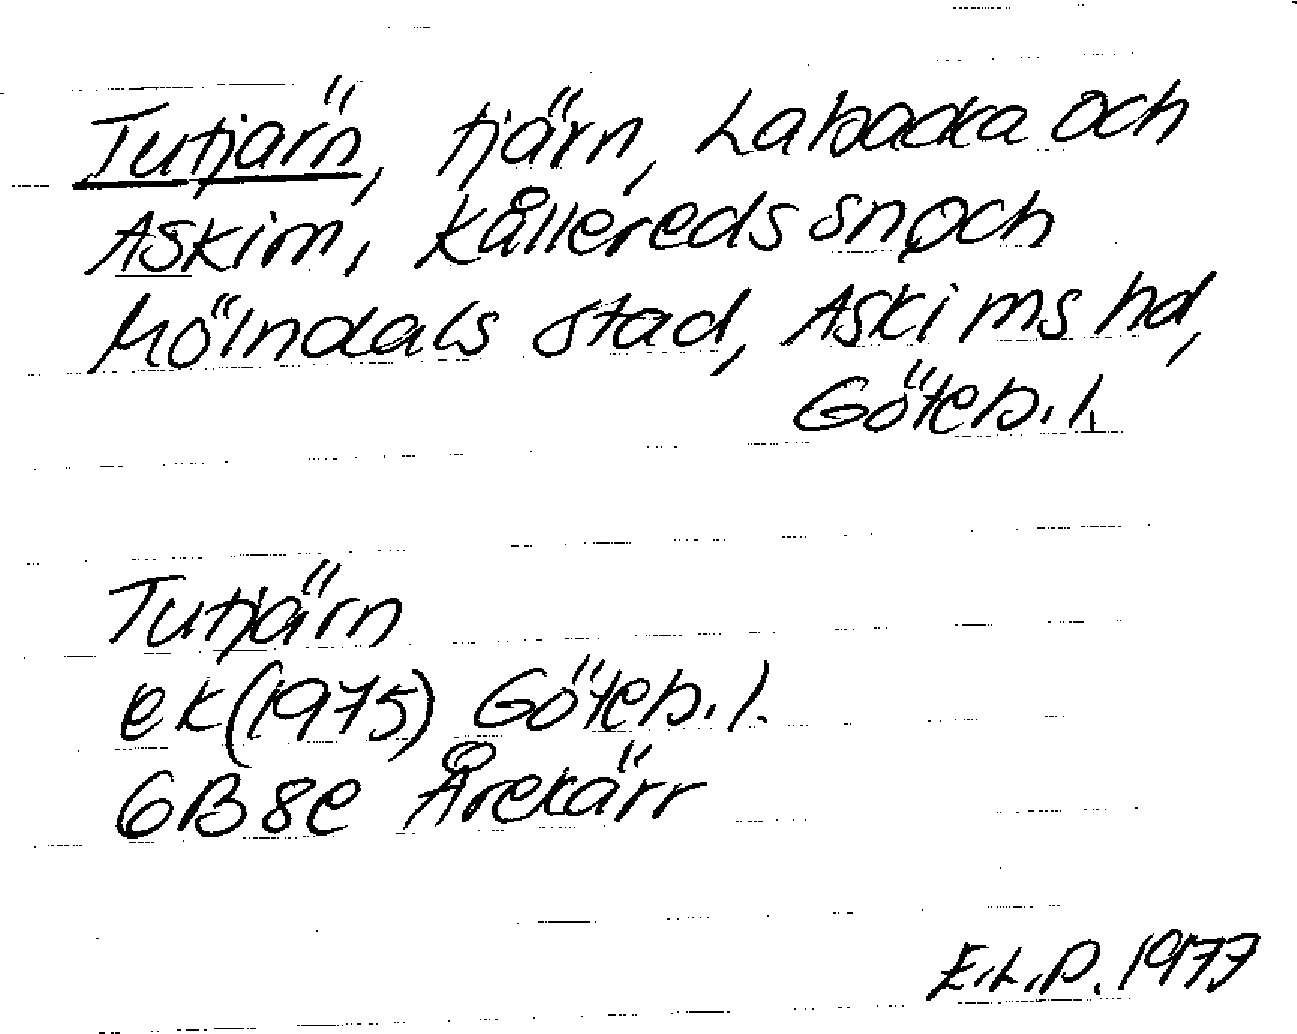 Tutjärn, tjärn, Labacka och
Askim, Kållereds sn och
Mölndals stad, Askims hd,
Göteb. l.
Tutjärn
ek (1975) Göteb. l.
6B 8e Årekärr
E.L.P. 1977